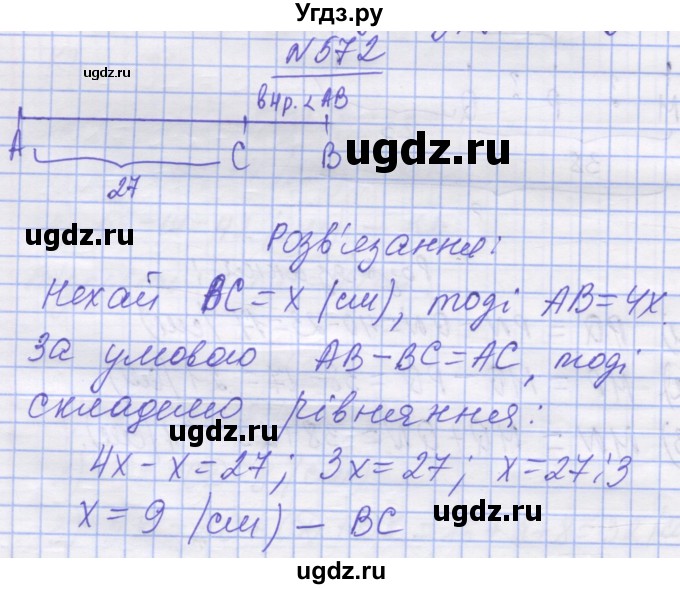 Угдз.ру
N572
ugdz.ru
в 4р. < AB
A C B
ugdz.ru
27
ugdz.ru
Розв'язання:
Нехай BC = x (см), тоді AB = 4x
За умовою AB - BC = AC, тоді
складемо рівняння:
ugdz.ru
4x - x = 27; 3x = 27; x = 27:3
x = 9 (см) - BC
ugdz.ru
ugdz.ru